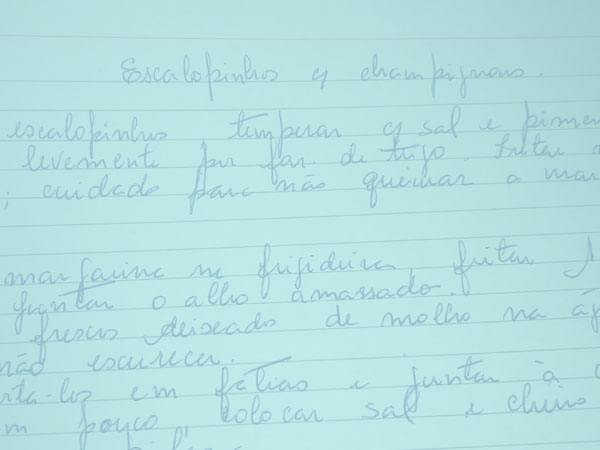 Escalopinhos c/ champignons.
escalopinhos temperar c/ sal e pimen
levemente por far. de trigo. fritar
; cuidado para não queimar a mar
margarina na frigideira, fritar
juntar o alho amassado.
frescos deixados de molho na ág
não escurecer.
rta-los em fatias e juntar à
m pouco colocar sal e cheiro